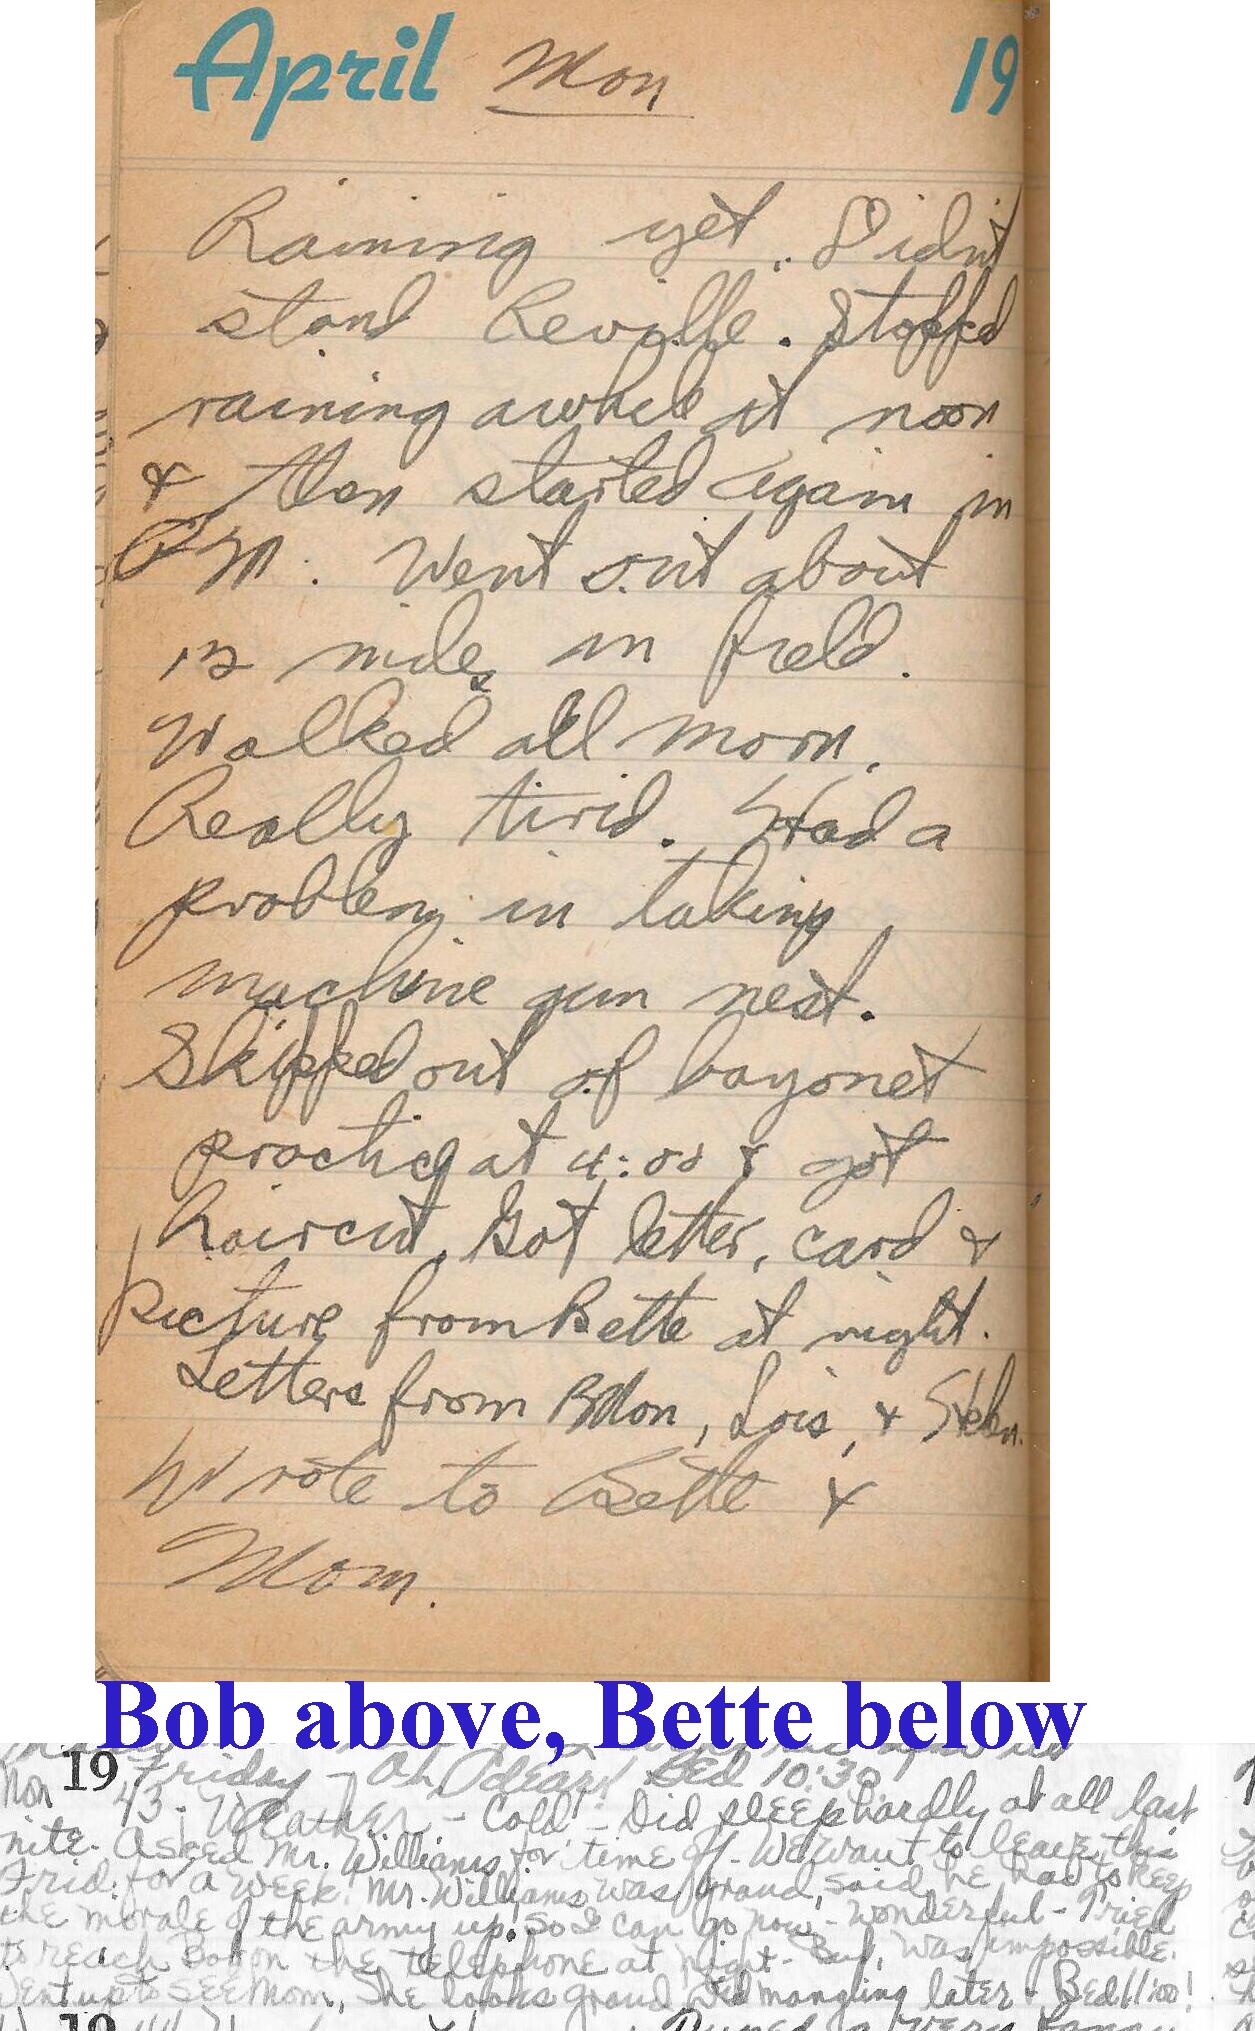 April Mon 19
Raining yet. Didn't
stand Reville. Stopped
raining awhile at noon
& then started again in
P.M. Went out about
12 miles in field.
Walked all morn.
Really tirid. Had a
problem in taking
machine gun nest.
Skipped out of bayonet
practice at 4:00 & got
haircut. Got letter, card &
picture from Bette at night.
Letters from Don, Lois, &
Wrote to Bette &
Mom.
Bob above, Bette below
19 Friday - Oh Dear! Bed 10:30
Mon 43 - Weather - Cold - Did sleep hardly at all last
nite. Asked Mr. Williams for time off. We want to leave this
Frid. for a week. Mr. Williams was grand, said he had to keep
the morale of the army up. So I can go now - Wonderful - Tried
to reach Bob on the telephone at night - But, was impossible.
Went up to see Mom, She looks grand. Did mangling later - Bed 11:00!
19